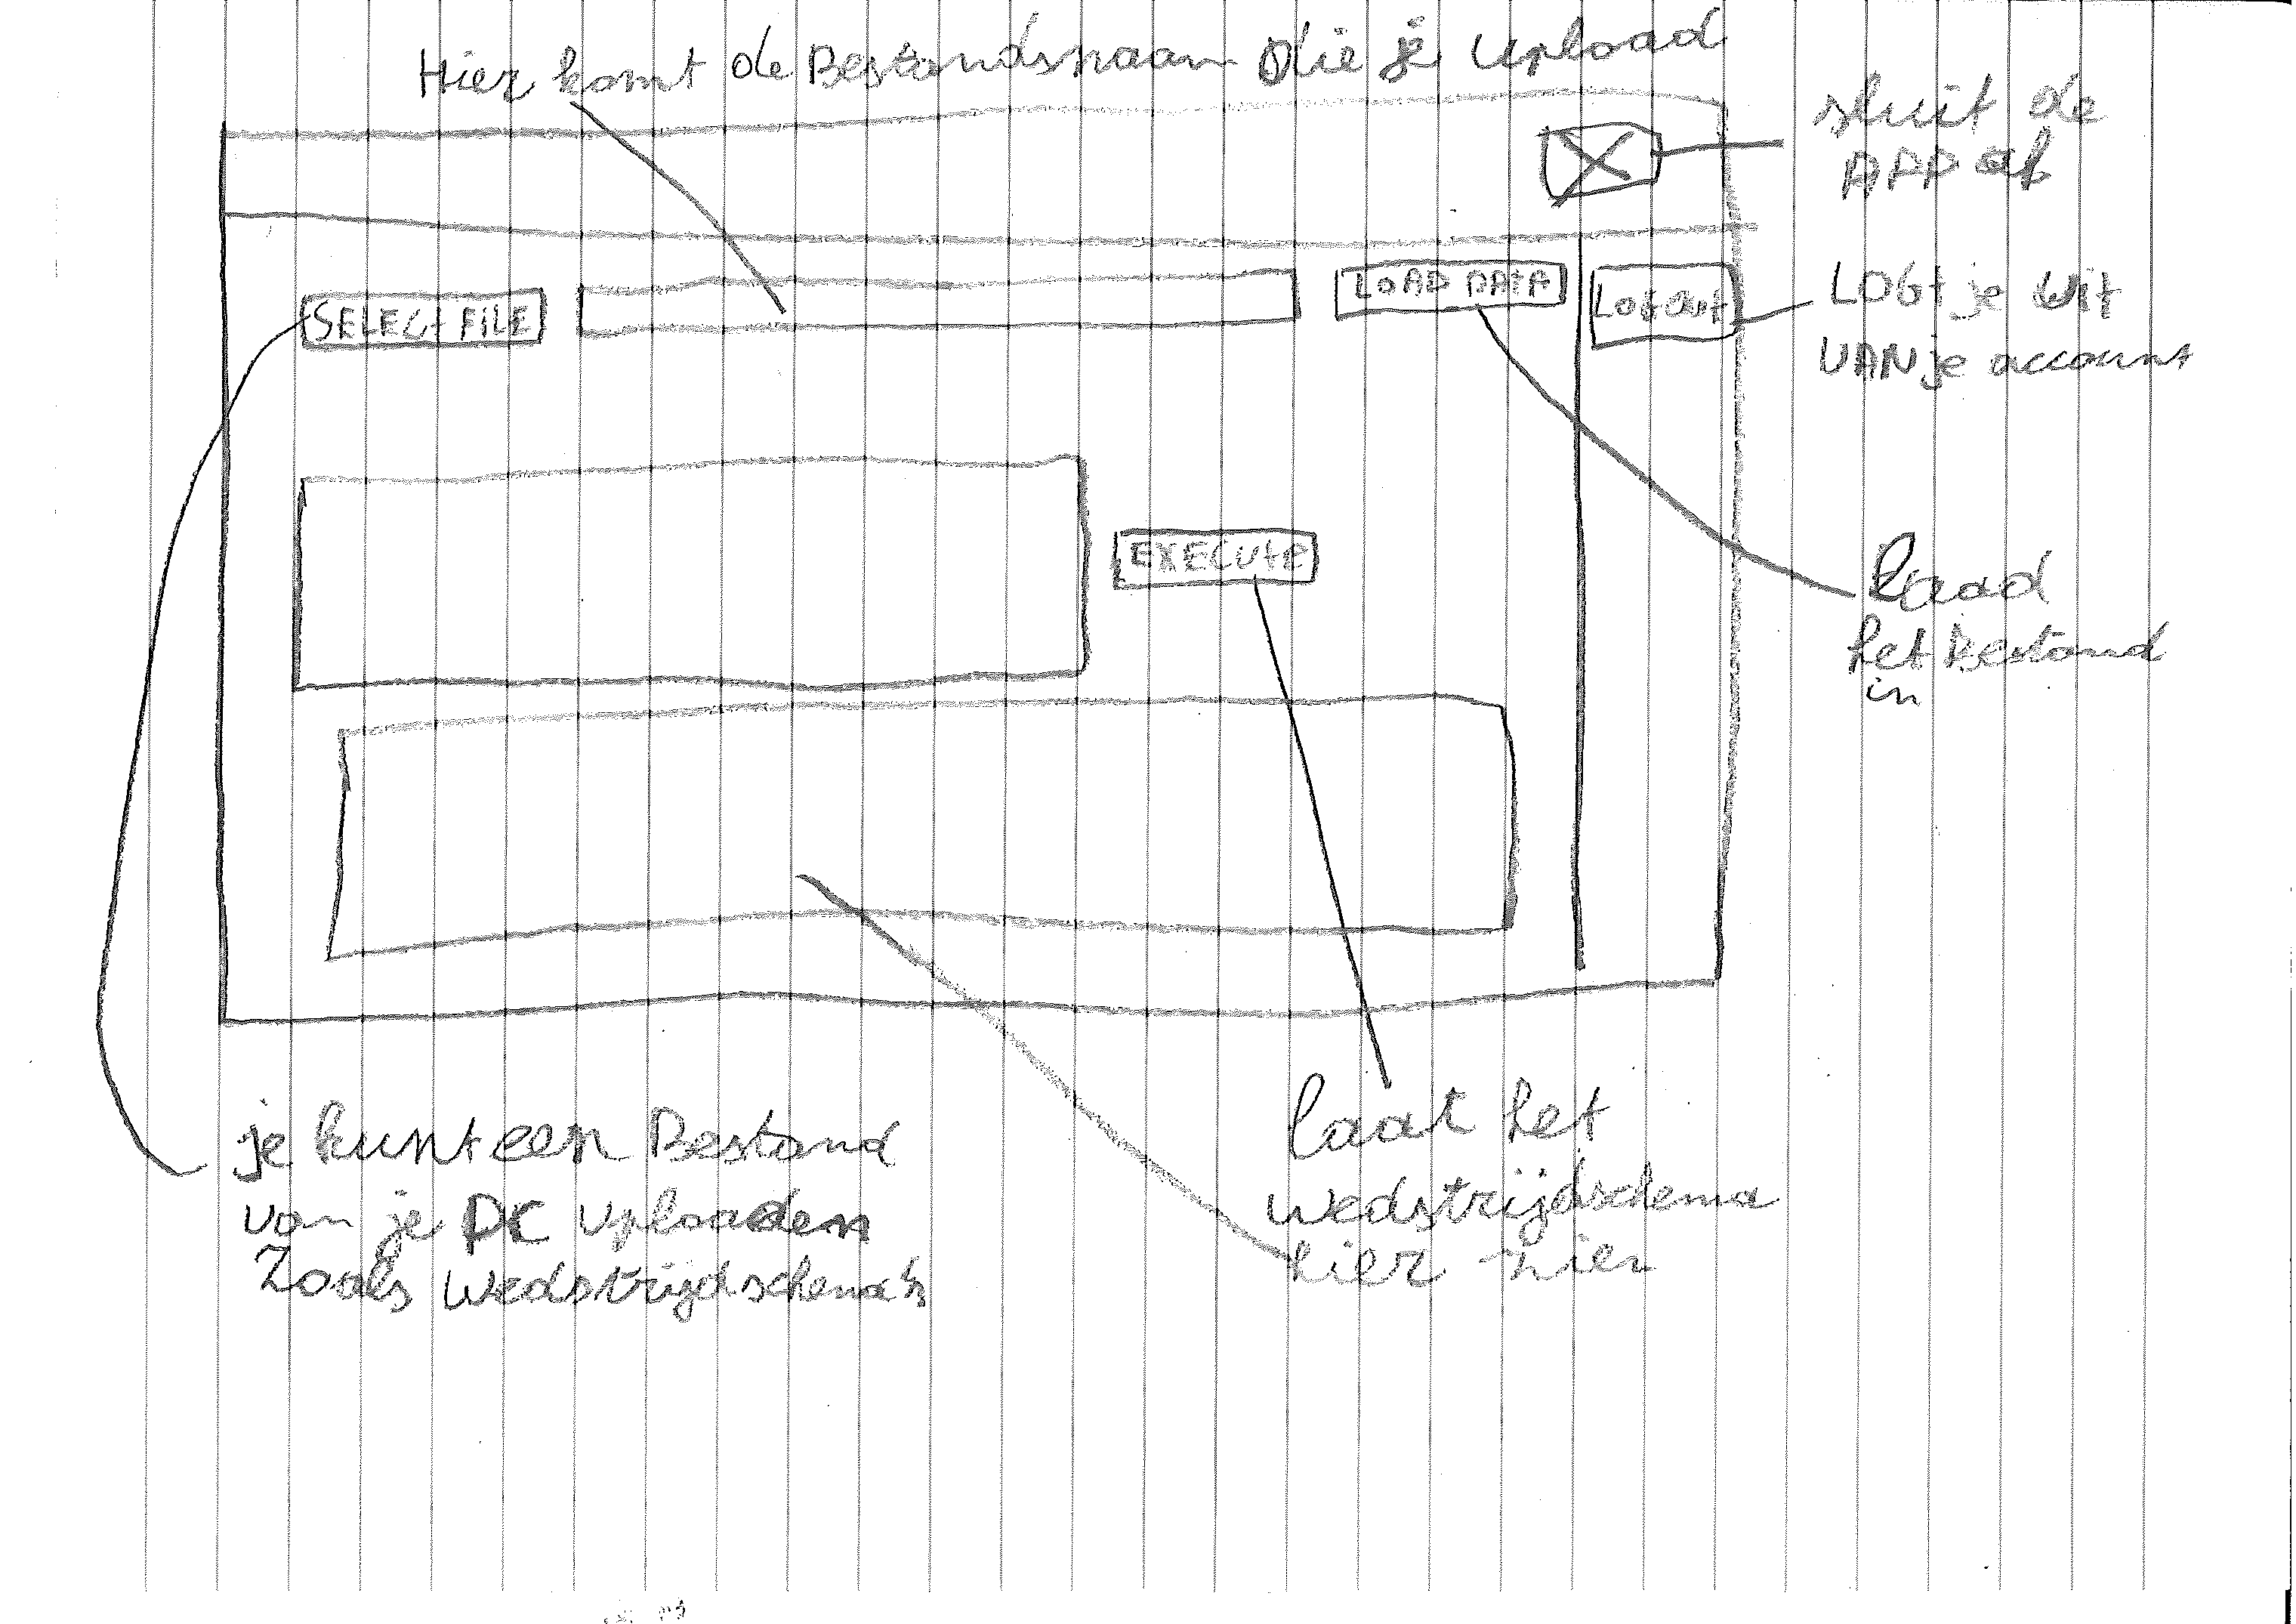 Hier komt de Bestandsnaam die je upload
sluit de
APP af
SELECT FILE
LOAD DATA
LOGOUT
LOGt je uit
VAN je account
EXECUTE
Laad
het Bestand
in
je kunt een Bestand
van je PC uploaden
Zoals wedstrijdschema's
laat het
wedstrijdschema
hier zien